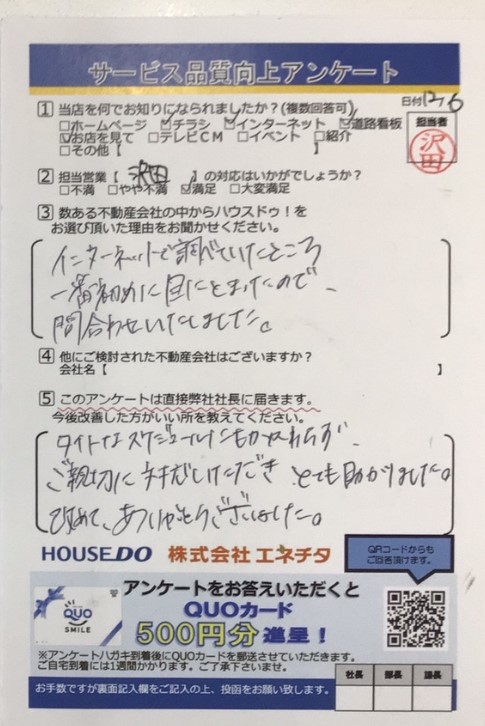 サービス品質向上アンケート
日付12/6
担当者
沢田
1 当店を何でお知りになられましたか？(複数回答可)
□ホームページ ☑チラシ ☑インターネット ☑道路看板
☑お店を見て □テレビCM □イベント □紹介
□その他【 】
2 担当営業【 沢田 】の対応はいかがでしょうか？
□不満 □やや不満 ☑満足 □大変満足
3 数ある不動産会社の中からハウスドゥ！を
お選び頂いた理由をお聞かせください。
インターネットで調べていたところ
一番初めに目にとまったので、
問合わせいたしました。
4 他にご検討された不動産会社はございますか？
会社名【 】
5 このアンケートは直接弊社社長に届きます。
今後改善した方がいい所を教えてください。
タイトなスケジュールにもかかわらず、
ご親切に対応いただき とても助かりました。
改めて、ありがとうございました。
HOUSEDO 株式会社 エネチタ
QRコードからも
ご回答頂けます。
QUO
SMILE
アンケートをお答えいただくと
QUOカード
500円分進呈！
※アンケートハガキ到着後にQUOカードを郵送させていただきます。
ご自宅到着には1週間かかります。ご了承下さいませ。
お手数ですが裏面記入欄をご記入の上、投函をお願い致します。
社長 部長 課長